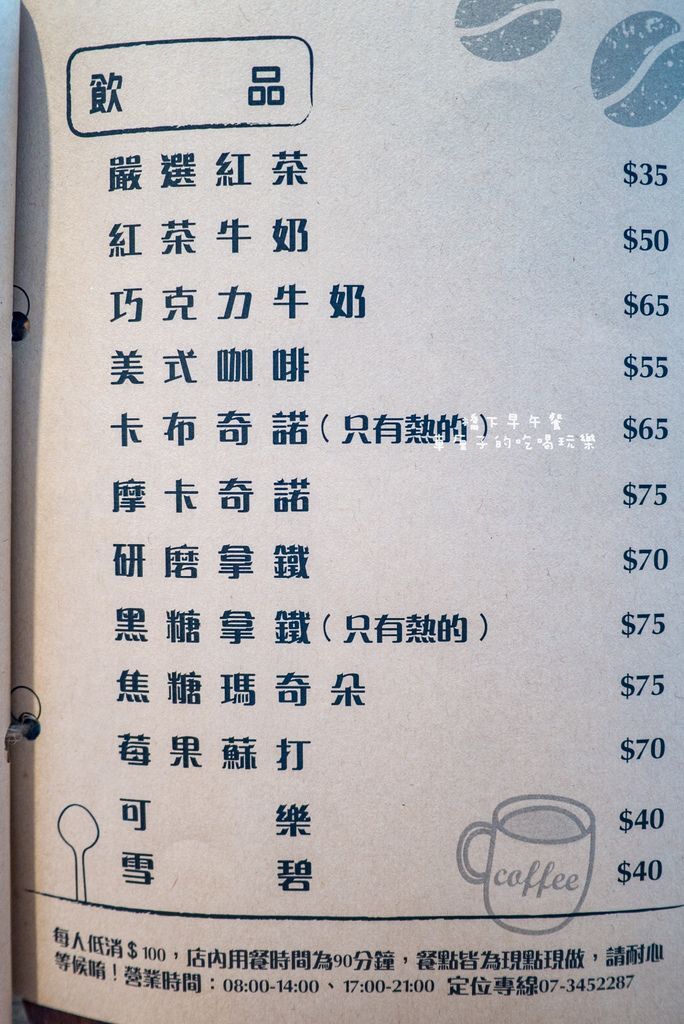 飲品
嚴選紅茶 $35
紅茶牛奶 $50
巧克力牛奶 $65
美式咖啡 $55
卡布奇諾（只有熱的） $65
橋下早午餐
的吃喝玩樂
摩卡奇諾 $75
研磨拿鐵 $70
黑糖拿鐵（只有熱的） $75
焦糖瑪奇朵 $75
莓果蘇打 $70
可樂 $40
雪碧 $40
coffee
每人低消$100，店內用餐時間為90分鐘，餐點皆為現點現做，請耐心
等候唷！營業時間：08:00-14:00、17:00-21:00 定位專線07-3452287